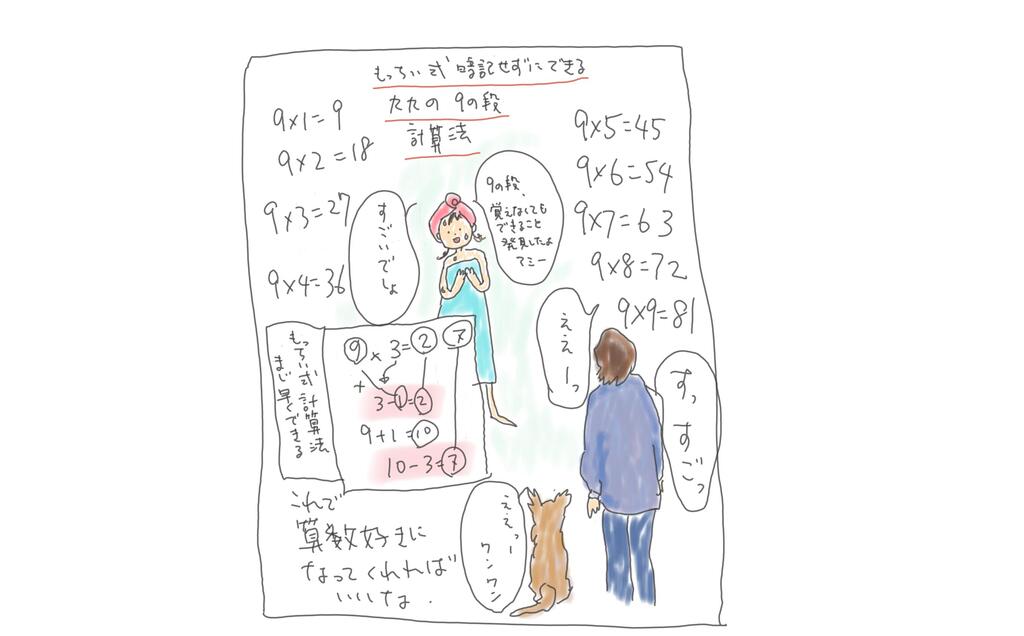 もっちぃ式 暗記せずにできる
九九の 9の段
計算法
9×1=9
9×2=18
9×3=27
9×4=36
9×5=45
9×6=54
9×7=63
9×8=72
9×9=81
9の段、
覚えなくても
できること
発見したよ
てミー
すごいでしょ
ええーっ
すっすごっ
もっちぃ式計算法
まじ早くできる
9×3=27
+
3-1=2
9+1=10
10-3=7
ええっー
ワンワン
これで
算数好きに
なってくれれば
いいな.